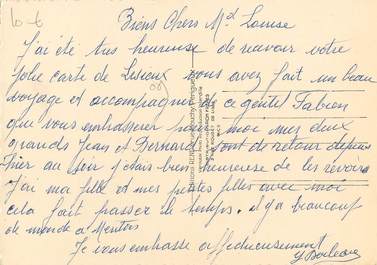 10-6
Biens Chers Md Louise
J'ai été très heureuse de recevoir votre
jolie carte de Lisieux vous avez fait un beau
voyage et accompagné de ce gentil Fabien
que vous embrasserez pour moi mes deux
grands Jean et Bernard sont de retour depuis
hier au soir j'étais bien heureuse de les revoirs
J'ai ma fille et mes petites filles avec moi
cela fait passer le temps. il y a beaucoup
de monde à Menton
Je vous embrasse affectueusement